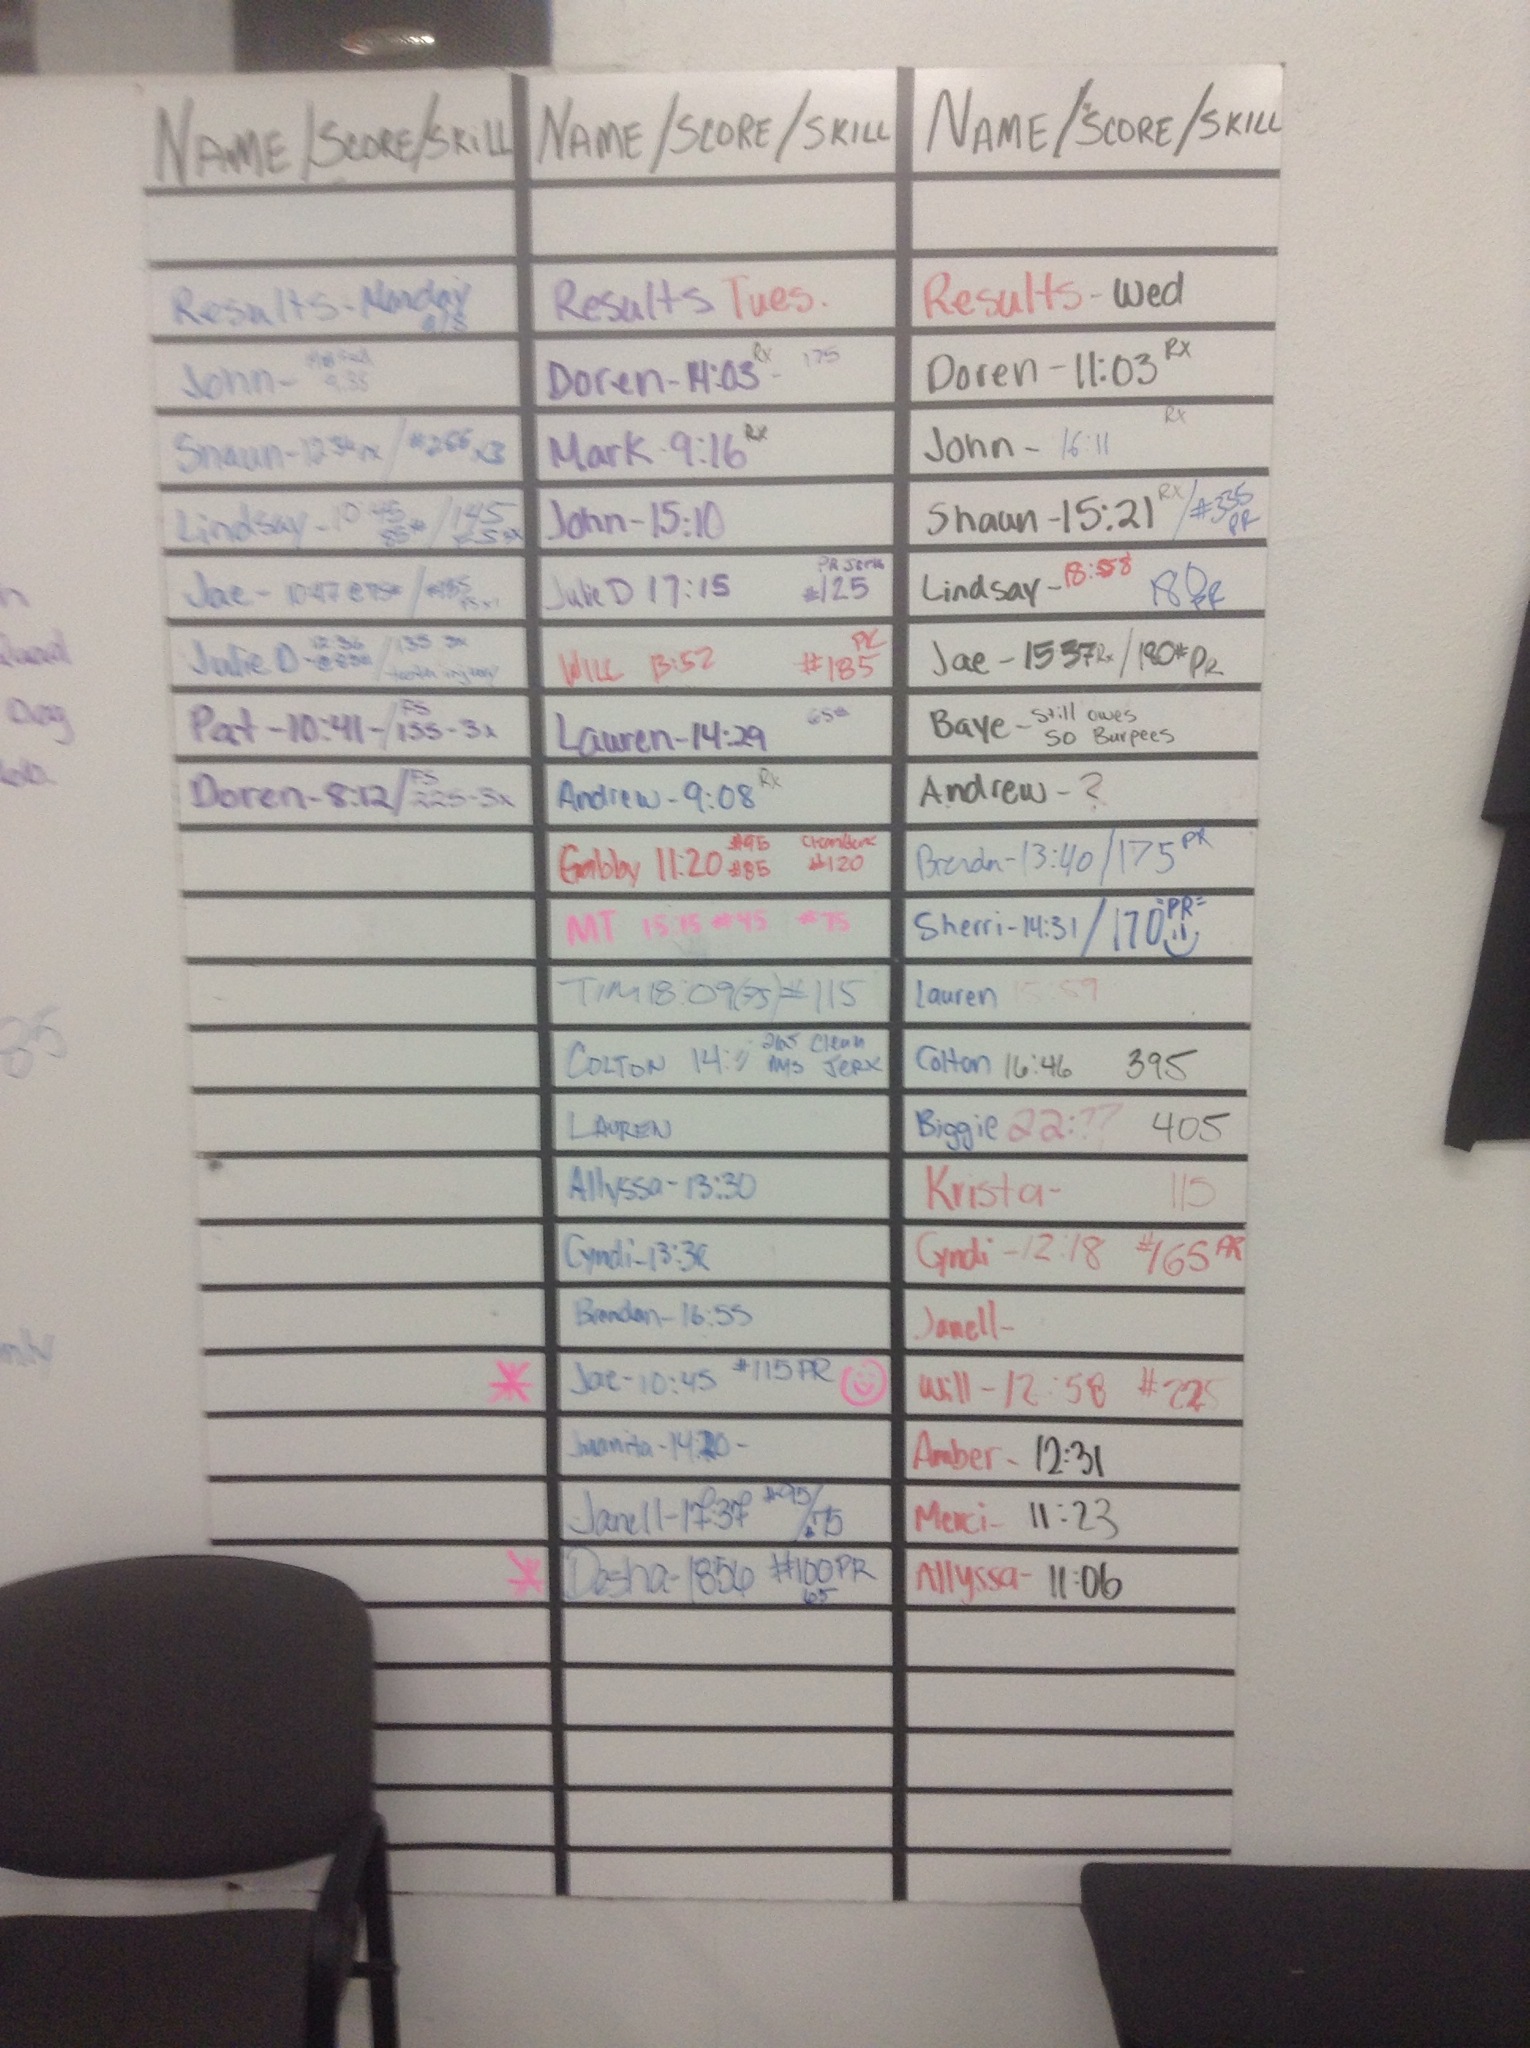 NAME/SCORE/SKILL
Results-Monday
John-
Shaun-12:34rx/#266 x3
Lindsay-10:45 85#/145
Jae-10:47 @75#/
Julie D-12:36 @83#/135 3x
Pat-10:41-/FS 155-3x
Doren-8:12/FS 225-3x
NAME/SCORE/SKILL
Results Tues.
Doren-14:03 Rx- 175
Mark-9:16 Rx
John-15:10
Julie D 17:15 PR Jerk #125
WILL 13:52 PR #185
Lauren-14:29 65#
Andrew-9:08 Rx
Gabby 11:20 #95 #85 #120
MT 15:15 #45 #75
TIM 18:09(75)#115
COLTON 14: 265 Clean JERK
LAUREN
Allyssa-13:30
Cyndi-13:36
Brendan-16:55
Jae-10:45 #115 PR
Juanita-14:20-
Janell-17:37 #95/75
Dasha-1856 #100PR 65
NAME/SCORE/SKILL
Results-Wed
Doren-11:03 Rx
John-16:11 Rx
Shaun-15:21 Rx/#335 PR
Lindsay-18:58 180 PR
Jae-1537Rx/180# PR
Baye-still owes
50 Burpees
Andrew-?
13:40/175 PR
Sherri-14:31/170 "PR"
Lauren 15:59
Colton 16:46 395
Biggie 22:?? 405
Krista- 115
Cyndi-12:18 #165 PR
Janell-
Will-12:58 #225
Amber-12:31
Merci-11:23
Allyssa-11:06
Dog
85